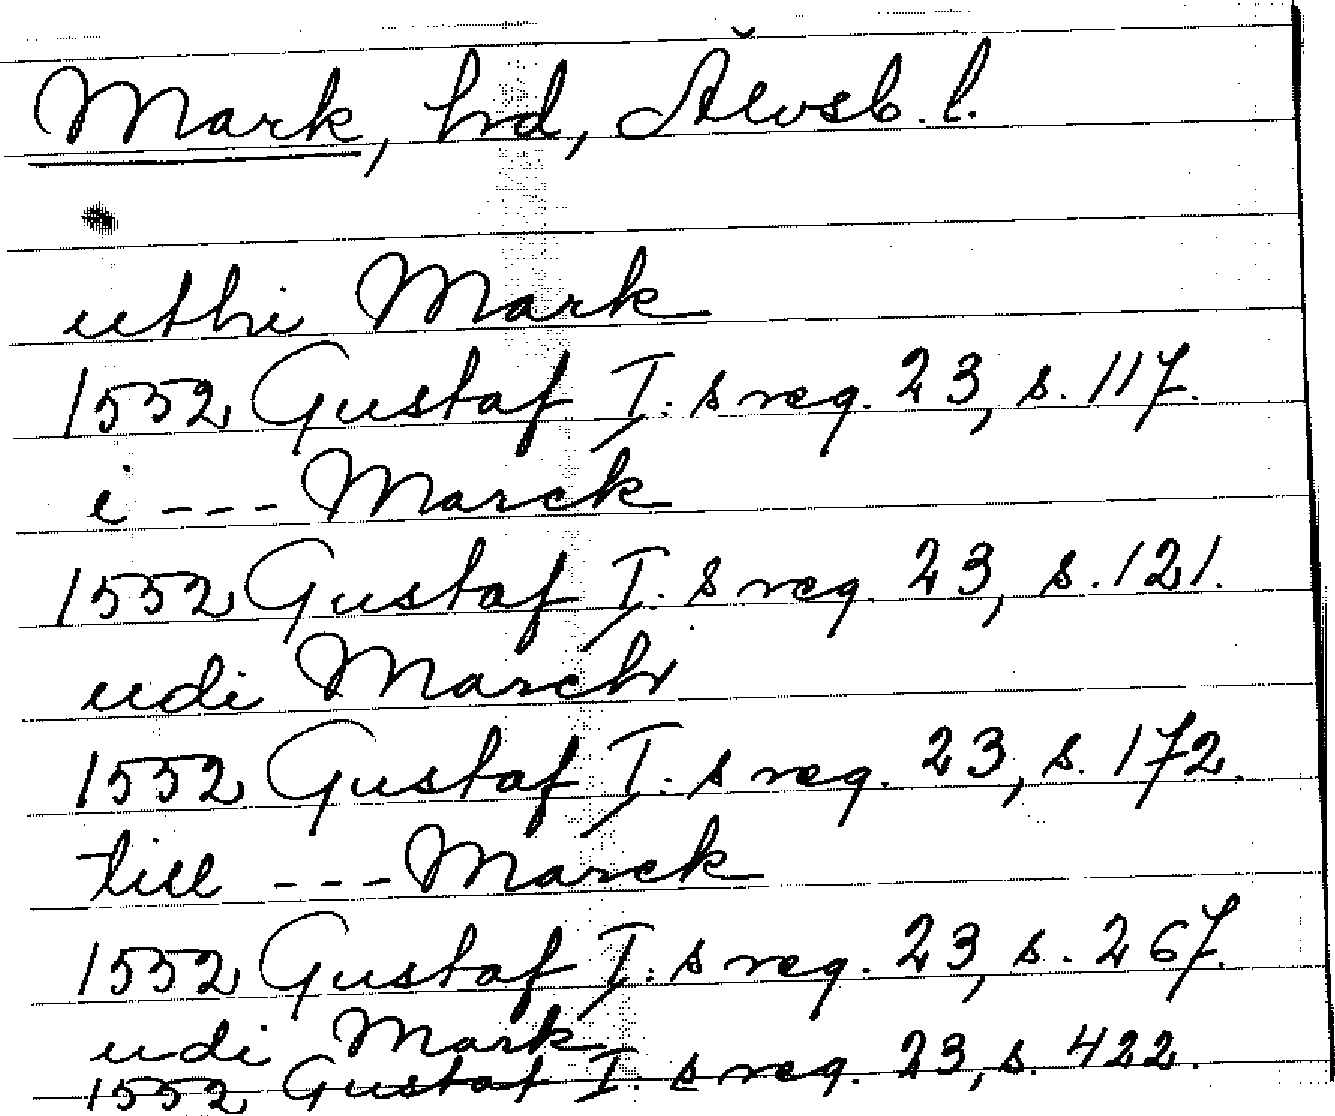 Mark, hrd, Älvsb. l.
uthi Mark
1552 Gustaf I:s reg. 23, s. 117.
i --- Marck
1552 Gustaf I:s reg. 23, s. 121.
udi March
1552 Gustaf I:s reg. 23, s. 172.
till --- Marck
1552 Gustaf I:s reg. 23, s. 267.
udi Mark
1552 Gustaf I:s reg. 23, s. 422.